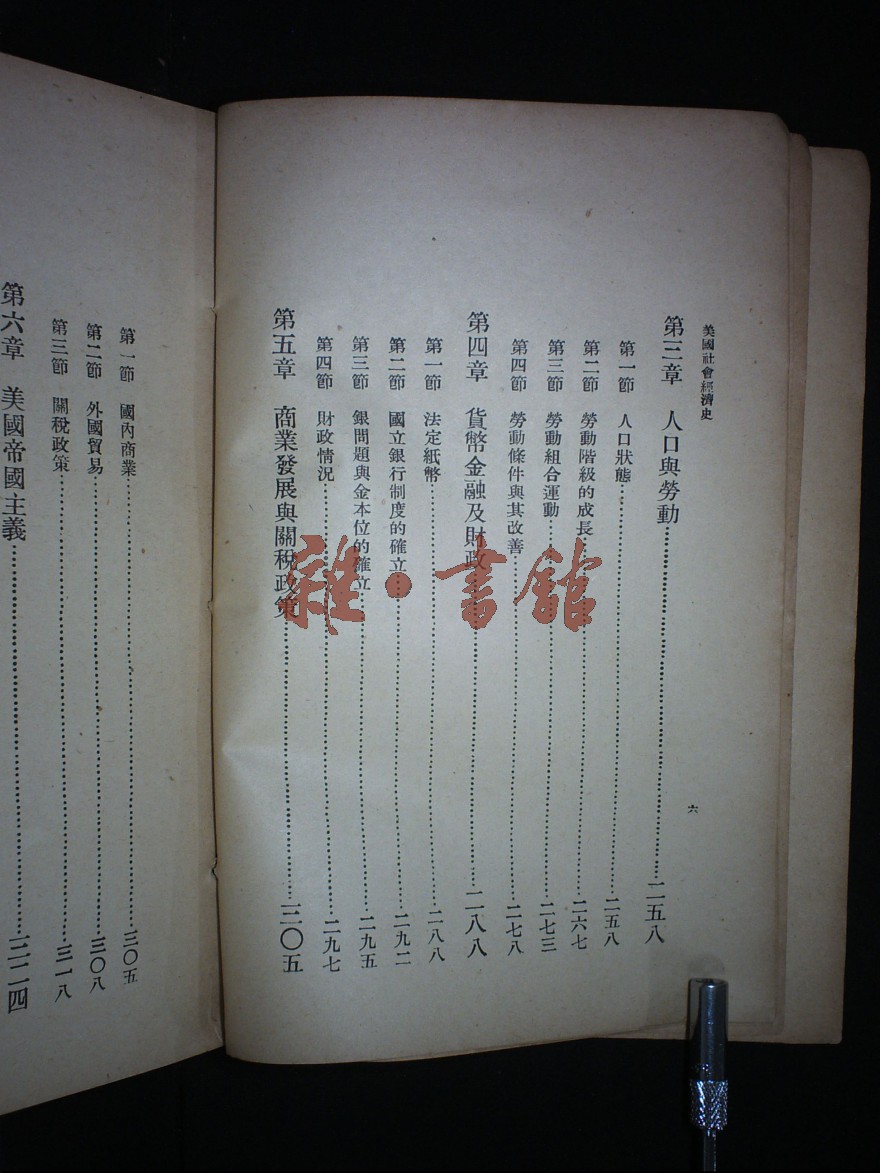 美國社會經濟史
六
第三章 人口與勞動……二五八
第一節 人口狀態……二五八
第二節 勞動階級的成長……二六七
第三節 勞動組合運動……二七三
第四節 勞動條件與其改善……二七八
第四章 貨幣金融及財政……二八八
第一節 法定紙幣……二八八
第二節 國立銀行制度的確立……二九二
第三節 銀問題與金本位的確立……二九五
第四節 財政情況……二九七
第五章 商業發展與關稅政策……三〇五
第一節 國內商業……三〇五
第二節 外國貿易……三〇八
第三節 關稅政策……三一八
第六章 美國帝國主義……三二四
雜·書館